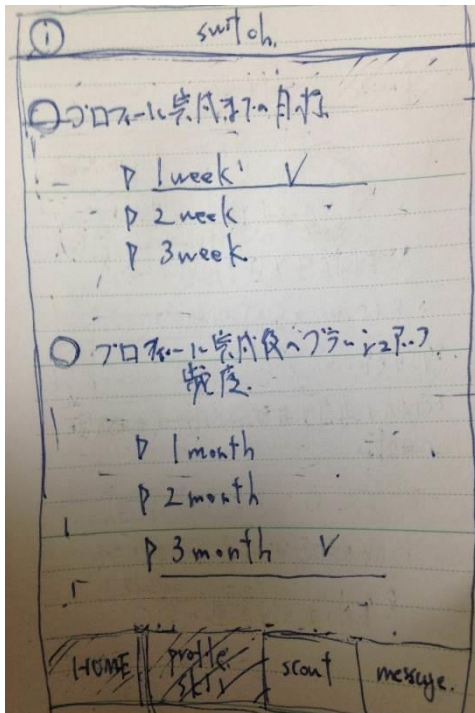 ① switch.
○ プロフィール完成までの目標
▷ 1 week ✓
▷ 2 week
▷ 3 week
○ プロフィール完成後のブラッシュアップ
頻度.
▷ 1 month
▷ 2 month
▷ 3 month ✓
HOME
profile
scout
message.